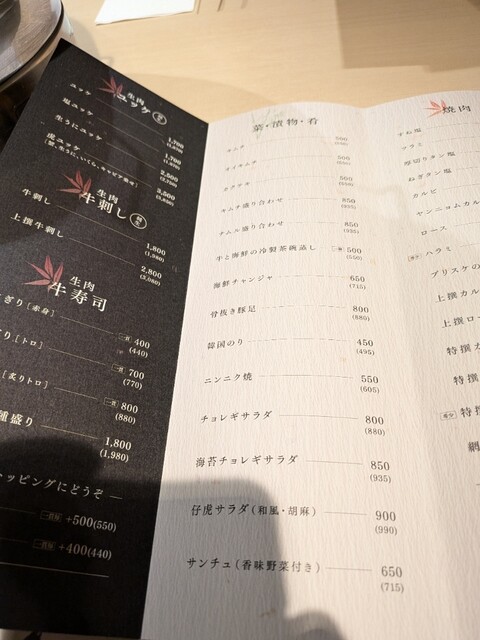 生肉
ユッケ
ユッケ 1,700
塩ユッケ 1,700
生うにユッケ 2,500
虎ユッケ 3,500
生肉
牛刺し
牛刺し 1,800
(1,980)
上撰牛刺し 2,800
(3,080)
生肉
牛寿司
ぎり[赤身] 一貫 400
(440)
り[トロ] 一貫 700
(770)
[炙りトロ] 一貫 800
(880)
種盛り 1,800
(1,980)
トッピングにどうぞ
+500(550)
+400(440)
菜・漬物・肴
キムチ
オイキムチ
カクテキ
キムチ盛り合わせ 850
(935)
ナムル盛り合わせ 850
(935)
牛と海鮮の冷製茶碗蒸し 500
(550)
海鮮チャンジャ 650
(715)
骨抜き豚足 800
(880)
韓国のり 450
(495)
ニンニク焼 550
(605)
チョレギサラダ 800
(880)
海苔チョレギサラダ 850
(935)
仔虎サラダ(和風・胡麻) 900
(990)
サンチュ(香味野菜付き) 650
(715)
焼肉
すね塩
ツラミ
厚切りタン塩
ねぎタン塩
カルビ
ヤンニョムカル
ロース
ハラミ
ブリスケの
上撰カル
上撰ロー
特撰カ
特撰
特撰
網